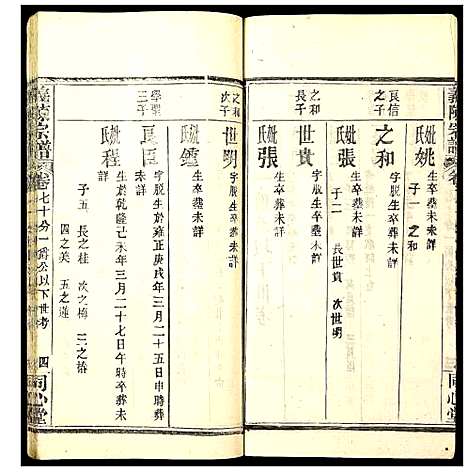 義陵宗譜
卷
同心堂
妣姚氏
生卒葬未詳
子一 之和
良信之子
之和
字脫生卒葬未詳
妣張氏
生卒葬未詳
子二 長世貴 次世明
之和長子
世貴
字脫生卒葬未詳
妣張氏
生卒葬未詳
之和次子
世明
字脫生卒葬未詳
妣鍾氏
生卒葬未詳
學聖三子
良臣
字脫生於雍正庚戌年三月二十五日申時葬未詳
妣程氏
生於乾隆己未年三月二十七日午時卒葬未詳
子五 長之桂 次之梅 三之椿
四之美 五之蓮
義陵宗譜
卷七十
分一爵公以下世考
四
同心堂